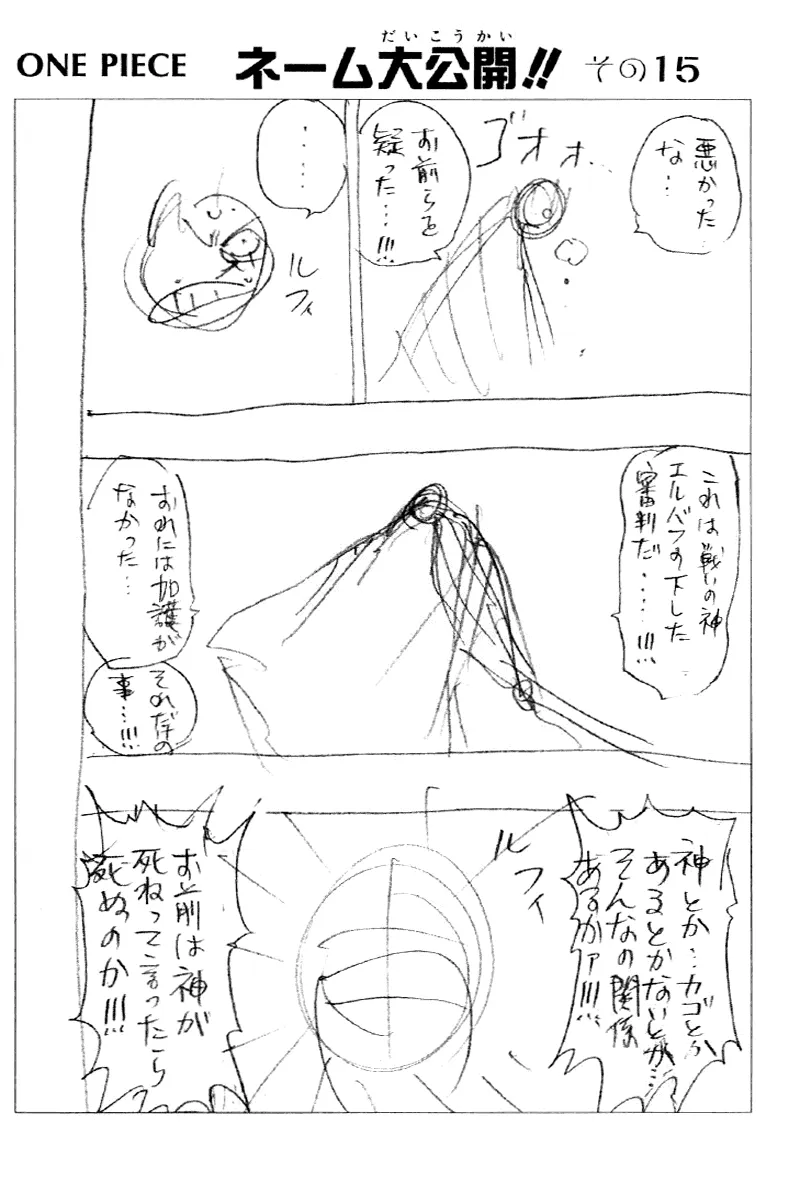 ONE PIECE
だいこうかい
ネーム大公開!!
その15
悪かった
な…
ゴオオ…
お前らを
疑った…!!!
……
ルフィ
これは戦いの神
エルバフの下した
審判だ……!!!
おれには加護が
なかった…
それだけの
事…!!!
神とか…カゴとか
あるとかないとか…
そんなの関係
あるかァ!!!!
ルフィ
お前は神が
死ねって言ったら
死ぬのか!!!!